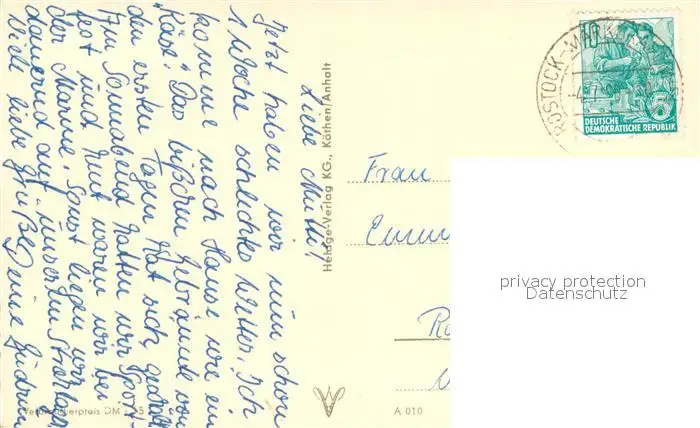 Liebe Mutti!
Jetzt haben wir nun schon
1 Woche schlechtes Wetter. Ich
komme nach Hause wie ein
Käse! Das bißchen Gebräunte von
den ersten Tagen hat sich
Am Sonnabend hatten wir Sport-
fest und heut waren wir bei
der Marine. Sonst liegen wir
dauernd auf unseren
Viele liebe Grüße Deine Gudrun
Verbraucherpreis DM -,25
Heldge-Verlag KG., Köthen/Anhalt
A 010
ROSTOCK-
10
5
DEUTSCHE
DEMOKRATISCHE REPUBLIK
Frau
privacy protection
Datenschutz